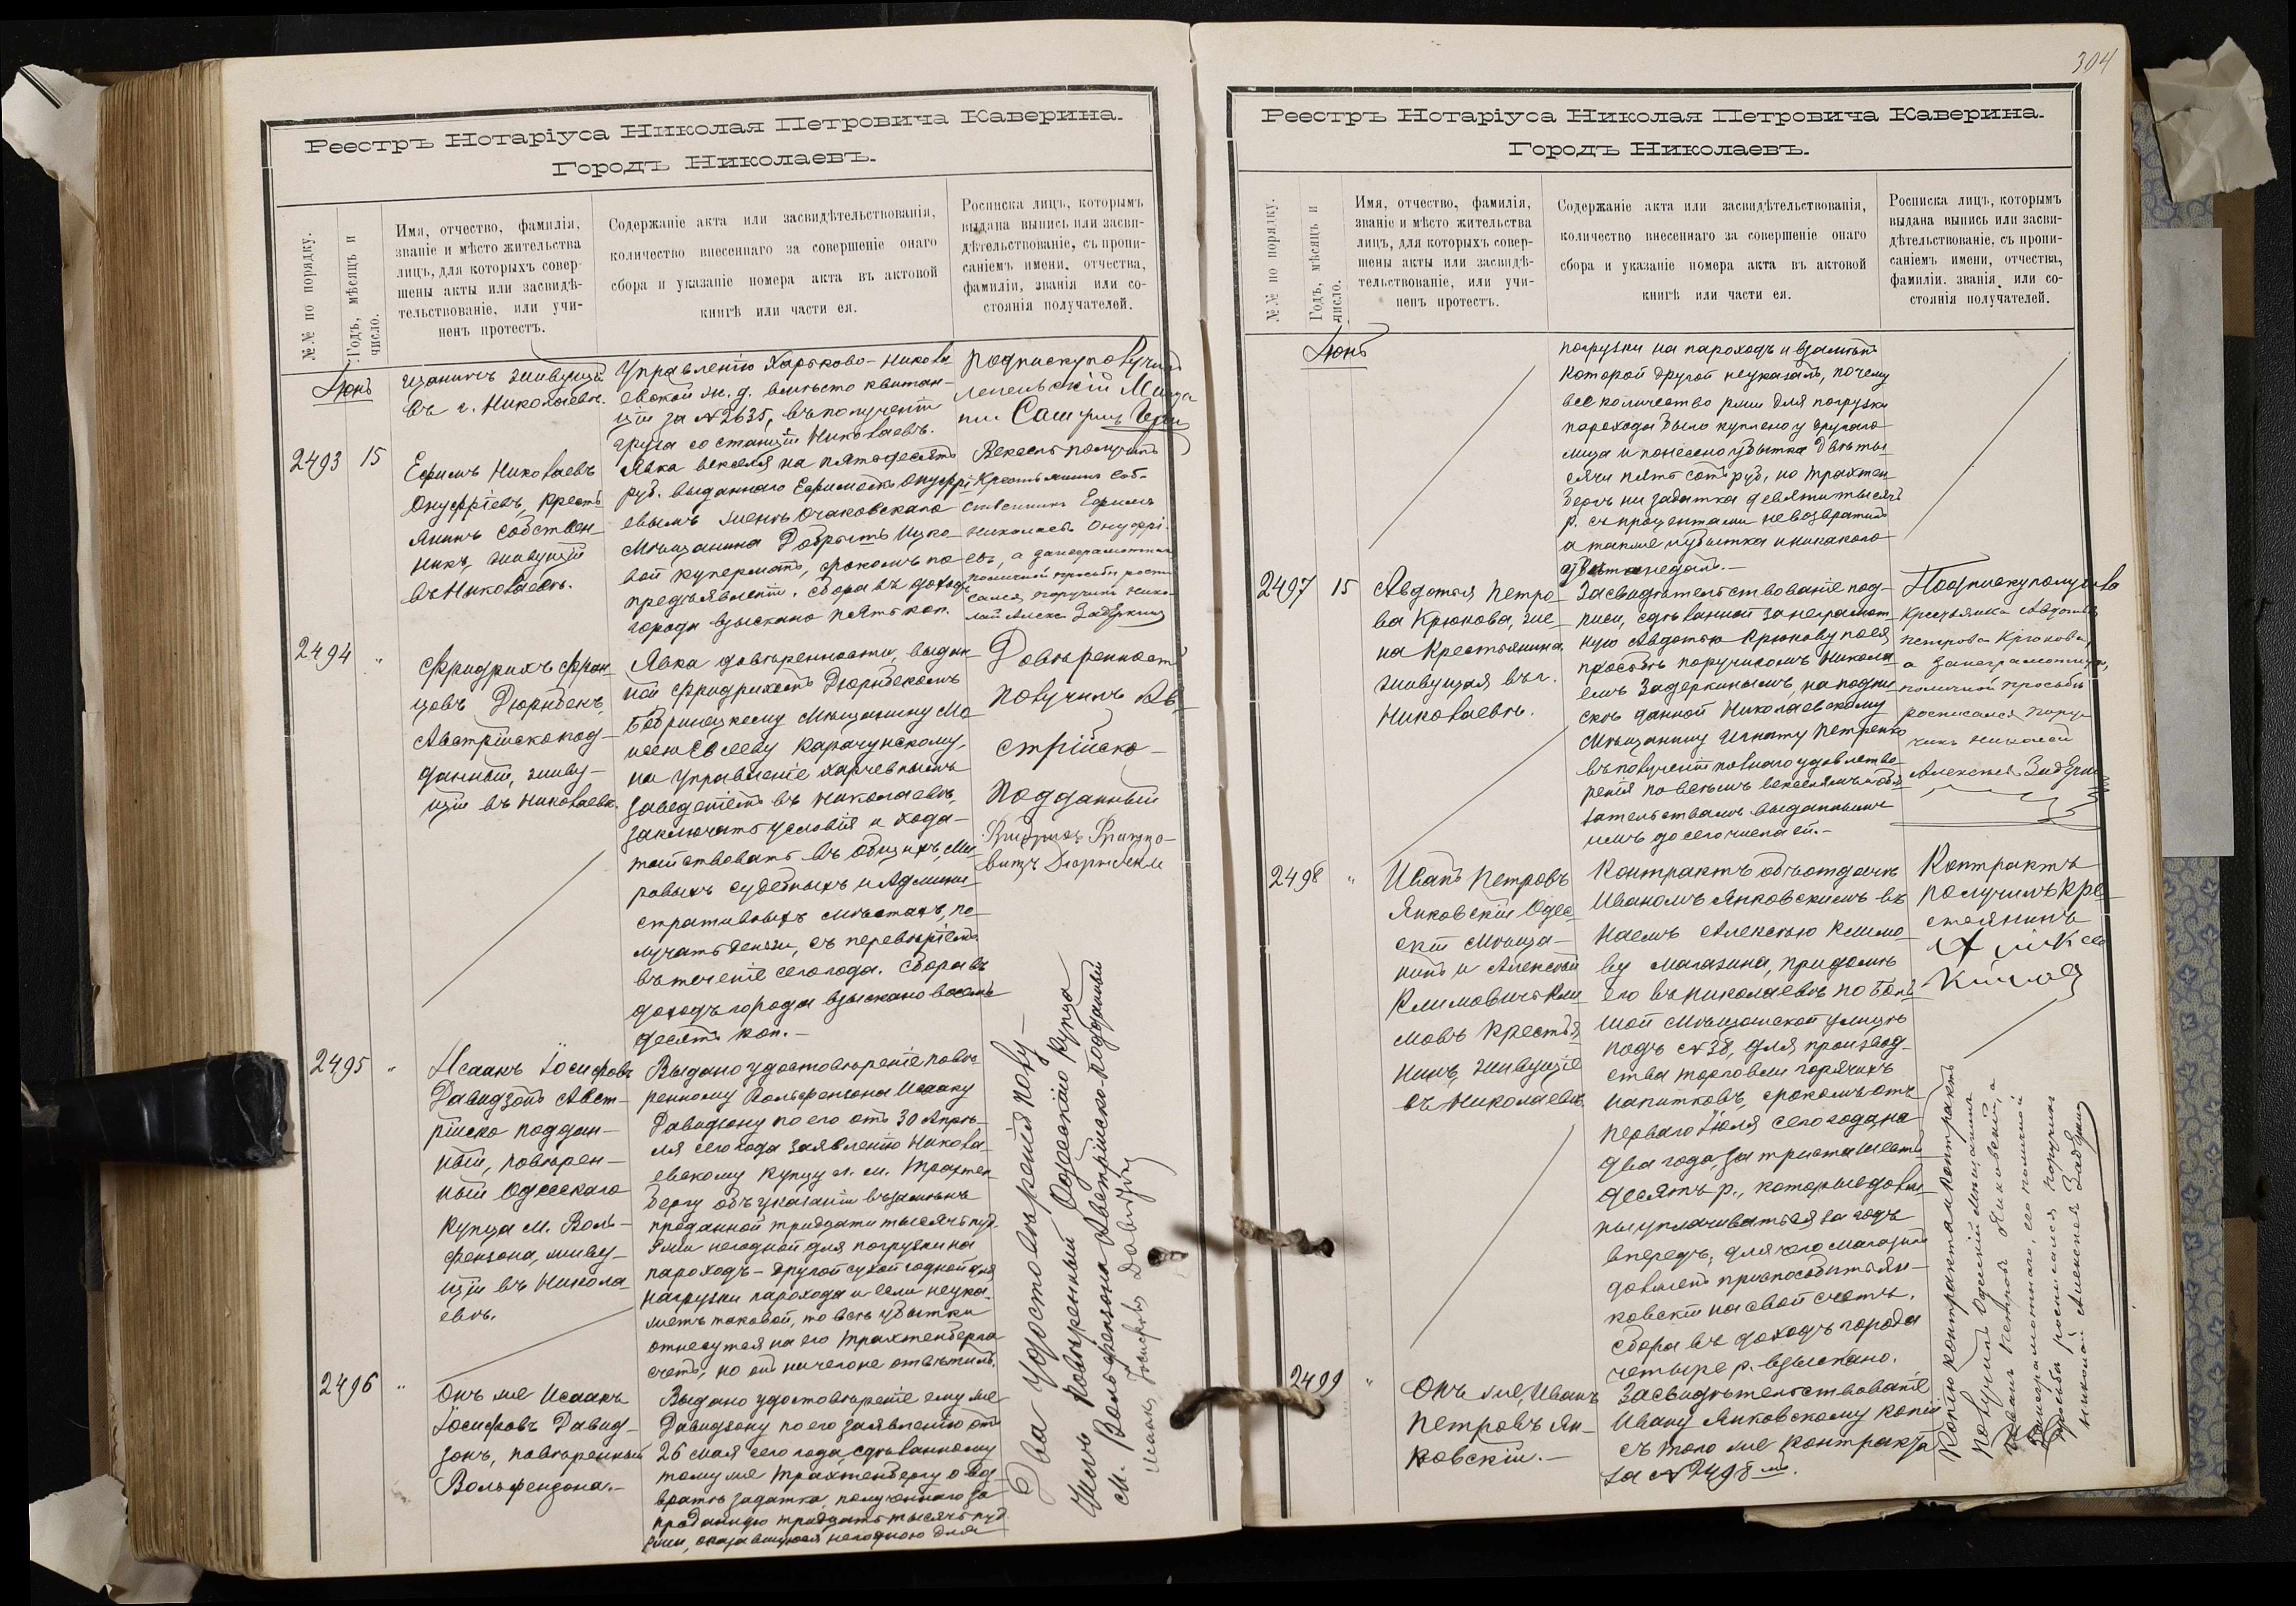 Реестръ Нотаріуса Николая Петровича Каверина.
Городъ Николаевъ.
№№ по порядку.
Годъ, мѣсяцъ и
число.
Имя, отчество, фамилія,
званіе и мѣсто жительства
лицъ, для которыхъ совер-
шены акты или засвидѣ-
тельствованіе, или учи-
ненъ протестъ.
Содержаніе акта или засвидѣтельствованія,
количество внесеннаго за совершеніе онаго
сбора и указаніе номера акта въ актовой
книгѣ или части ея.
Росписка лицъ, которымъ
выдана выпись или засви-
дѣтельствованіе, съ пропи-
саніемъ имени, отчества,
фамиліи, званія или со-
стоянія получателей.
Іюнь
щанинъ живущій
въ г. Николаевѣ.
Управленію Харьково-Никола
евской ж. д. вмѣсто квитан-
ціи за №2635, въ полученіи
груза со станціи Николаевъ.
Подписку получилъ
2493 15
Ефимъ Николаевъ
Онуфріевъ, кресть
янинъ собствен-
никъ, живущій
въ Николаевѣ.
Явка векселя на пятьдесятъ
руб. выданнаго Ефимомъ Онуфрі
евымъ женѣ Очаковскаго
мѣщанина Добрысь Ицко-
вой Куперманъ, срокомъ по
предъявленіи. Сбора въ доходъ
города взыскано пять коп.
Вексель получилъ
Крестьянинъ соб-
ственникъ Ефимъ
Николаевъ Онуфрі-
евъ, а за неграмотнаго
по личной просьбѣ роспи
сался поручикъ Нико-
лай Алекс. Задеркинъ
2494 "
Фридрихъ Фран
цовъ Дюрнбекъ,
Австрійско под-
данный, живу-
щій въ Николаевѣ.
Явка довѣренности, выдан-
ной Фридрихомъ Дюрнбекомъ
Бобринецкому мѣщанину Мо
исею Евсееву Карачунскому,
на управленіе харчевнымъ
заведеніемъ въ Николаевѣ,
заключать условія и хода-
тайствовать въ общихъ, ми-
ровыхъ судебныхъ и админи
стративныхъ мѣстахъ, по-
лучать деньги, съ перевѣріемъ
въ теченіе сего года. Сбора въ
доходъ города взыскано восемь
десятъ коп.-
Довѣренность
получилъ Ав-
стрійско-
подданный
2495 "
Исаакъ Іосифовъ
Давидзонъ Авст-
рійско поддан-
ный, повѣрен-
ный Одесскаго
купца М. Воль-
фензона, живу-
щій въ Никола
евѣ.
Выдано удостовѣреніе повѣ-
ренному Вольфензона Исааку
Давидзону по его отъ 30 Апрѣ-
ля сего года заявленію Никола-
евскому купцу М. М. Трахтен
бергу объ указаніи взамѣнъ
проданной тридцати тысячъ пуд.
ржи негодной для погрузки на
пароходъ - другой сухой годной для
нагрузки парохода и если неука-
жетъ таковой, то всѣ убытки
отнесутся на его Трахтенберга
счетъ, но онъ ничего не отвѣтилъ.
2496 "
Онъ же Исаакъ
Іосифовъ Давид-
зонъ, повѣренный
Вольфензона.-
Выдано удостовѣреніе ему же
Давидзону по его заявленію отъ
26 Мая сего года, сдѣланному
тому же Трахтенбергу о воз-
вратѣ задатка, полученнаго за
проданную тридцать тысячъ пуд
ржи, оказавшуюся негодною для
Два удостовѣренія полу-
чилъ повѣренный Одесскаго купца
М. Вольфензона Австрійско-подданный
Исаакъ Іосифовъ Давидзонъ
304
Реестръ Нотаріуса Николая Петровича Каверина.
Городъ Николаевъ.
№№ по порядку.
Годъ, мѣсяцъ и
число.
Имя, отчество, фамилія,
званіе и мѣсто жительства
лицъ, для которыхъ совер-
шены акты или засвидѣ-
тельствованіе, или учи-
ненъ протестъ.
Содержаніе акта или засвидѣтельствованія,
количество внесеннаго за совершеніе онаго
сбора и указаніе номера акта въ актовой
книгѣ или части ея.
Росписка лицъ, которымъ
выдана выпись или засви-
дѣтельствованіе, съ пропи-
саніемъ имени, отчества,
фамиліи, званія или со-
стоянія получателей.
Іюнь
погрузки на пароходъ и взамѣнъ
которой другой неуказалъ, почему
все количество ржи для погрузки
парохода было куплено у другаго
лица и понесено убытка двѣ ты
сячи пять сотъ руб., но Трахтен
бергъ ни задатка девяти тысячъ
р. съ процентами невозвратилъ
а также и убытка и никакого
отвѣта недалъ.-
2497 15
Авдотья Петро-
ва Крюкова, же-
на крестьянина,
живущая въ г.
Николаевѣ.
Засвидѣтельствованіе под-
писи, сдѣланной за неграмот-
ную Авдотью Крюкову по ея
просьбѣ поручикомъ Никола
емъ Задеркинымъ, на подпи
скѣ данной Николаевскому
мѣщанину Игнату Петренко
въ полученіи полнаго удовлетво-
ренія по всѣмъ векселямъ и обя-
зательствамъ выданнымъ
имъ до сего числа ей.-
Подписку получила
крестьянка Авдотья
Петрова Крюкова,
а за неграмотную,
по личной просьбѣ
росписался пору-
чикъ Николай
Алексѣевъ Задеркинъ
2498 "
Иванъ Петровъ
Янковскій Одес-
скій мѣща-
нинъ и Алексѣй
Климовичъ Кли
мовъ крестья
нинъ, живущіе
въ Николаевѣ.
Контрактъ объ отдачѣ
Иваномъ Янковскимъ въ
наемъ Алексѣю Климо-
ву магазина, при домѣ
его въ Николаевѣ по Боль
шой Мѣщанской улицѣ
подъ №38, для производ-
ства торговли горячихъ
напитковъ, срокомъ отъ
перваго Іюля сего года, на
два года, за триста шесть
десятъ р., которые долж-
ны уплачиваться за годъ
впередъ, для чего магазинъ
долженъ приспособить Ян-
ковскій на свой счетъ.
Сбора въ доходъ города
четыре р. взыскано.
Контрактъ
получилъ кре-
стьянинъ
2499 "
Онъ же, Иванъ
Петровъ Ян-
ковскій.-
Засвидѣтельствованіе
Ивану Янковскому копіи
съ того же контракта
за №2498 мъ.
Копію контракта и контрактъ
получилъ Одесскій мѣщанинъ
Иванъ Петровъ Янковскій, а
за неграмотнаго, его по личной
просьбѣ росписался поручикъ
Николай Алексѣевъ Задеркинъ